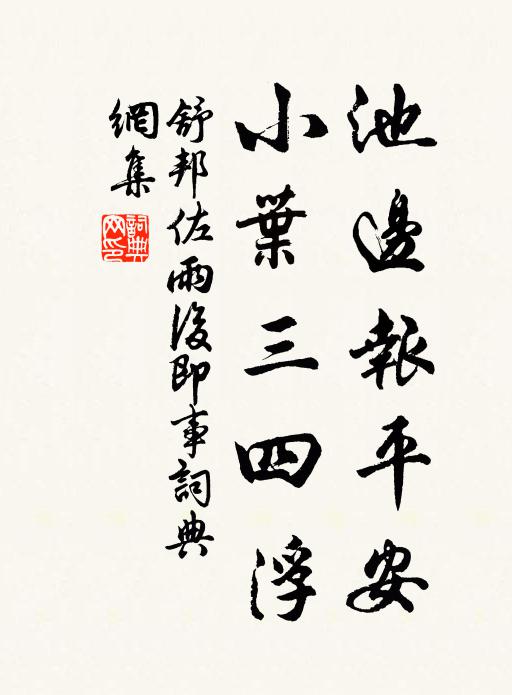 池邊報平安
小葉三四浮
舒邦佐雨後即事詞典
網集
詞典網印